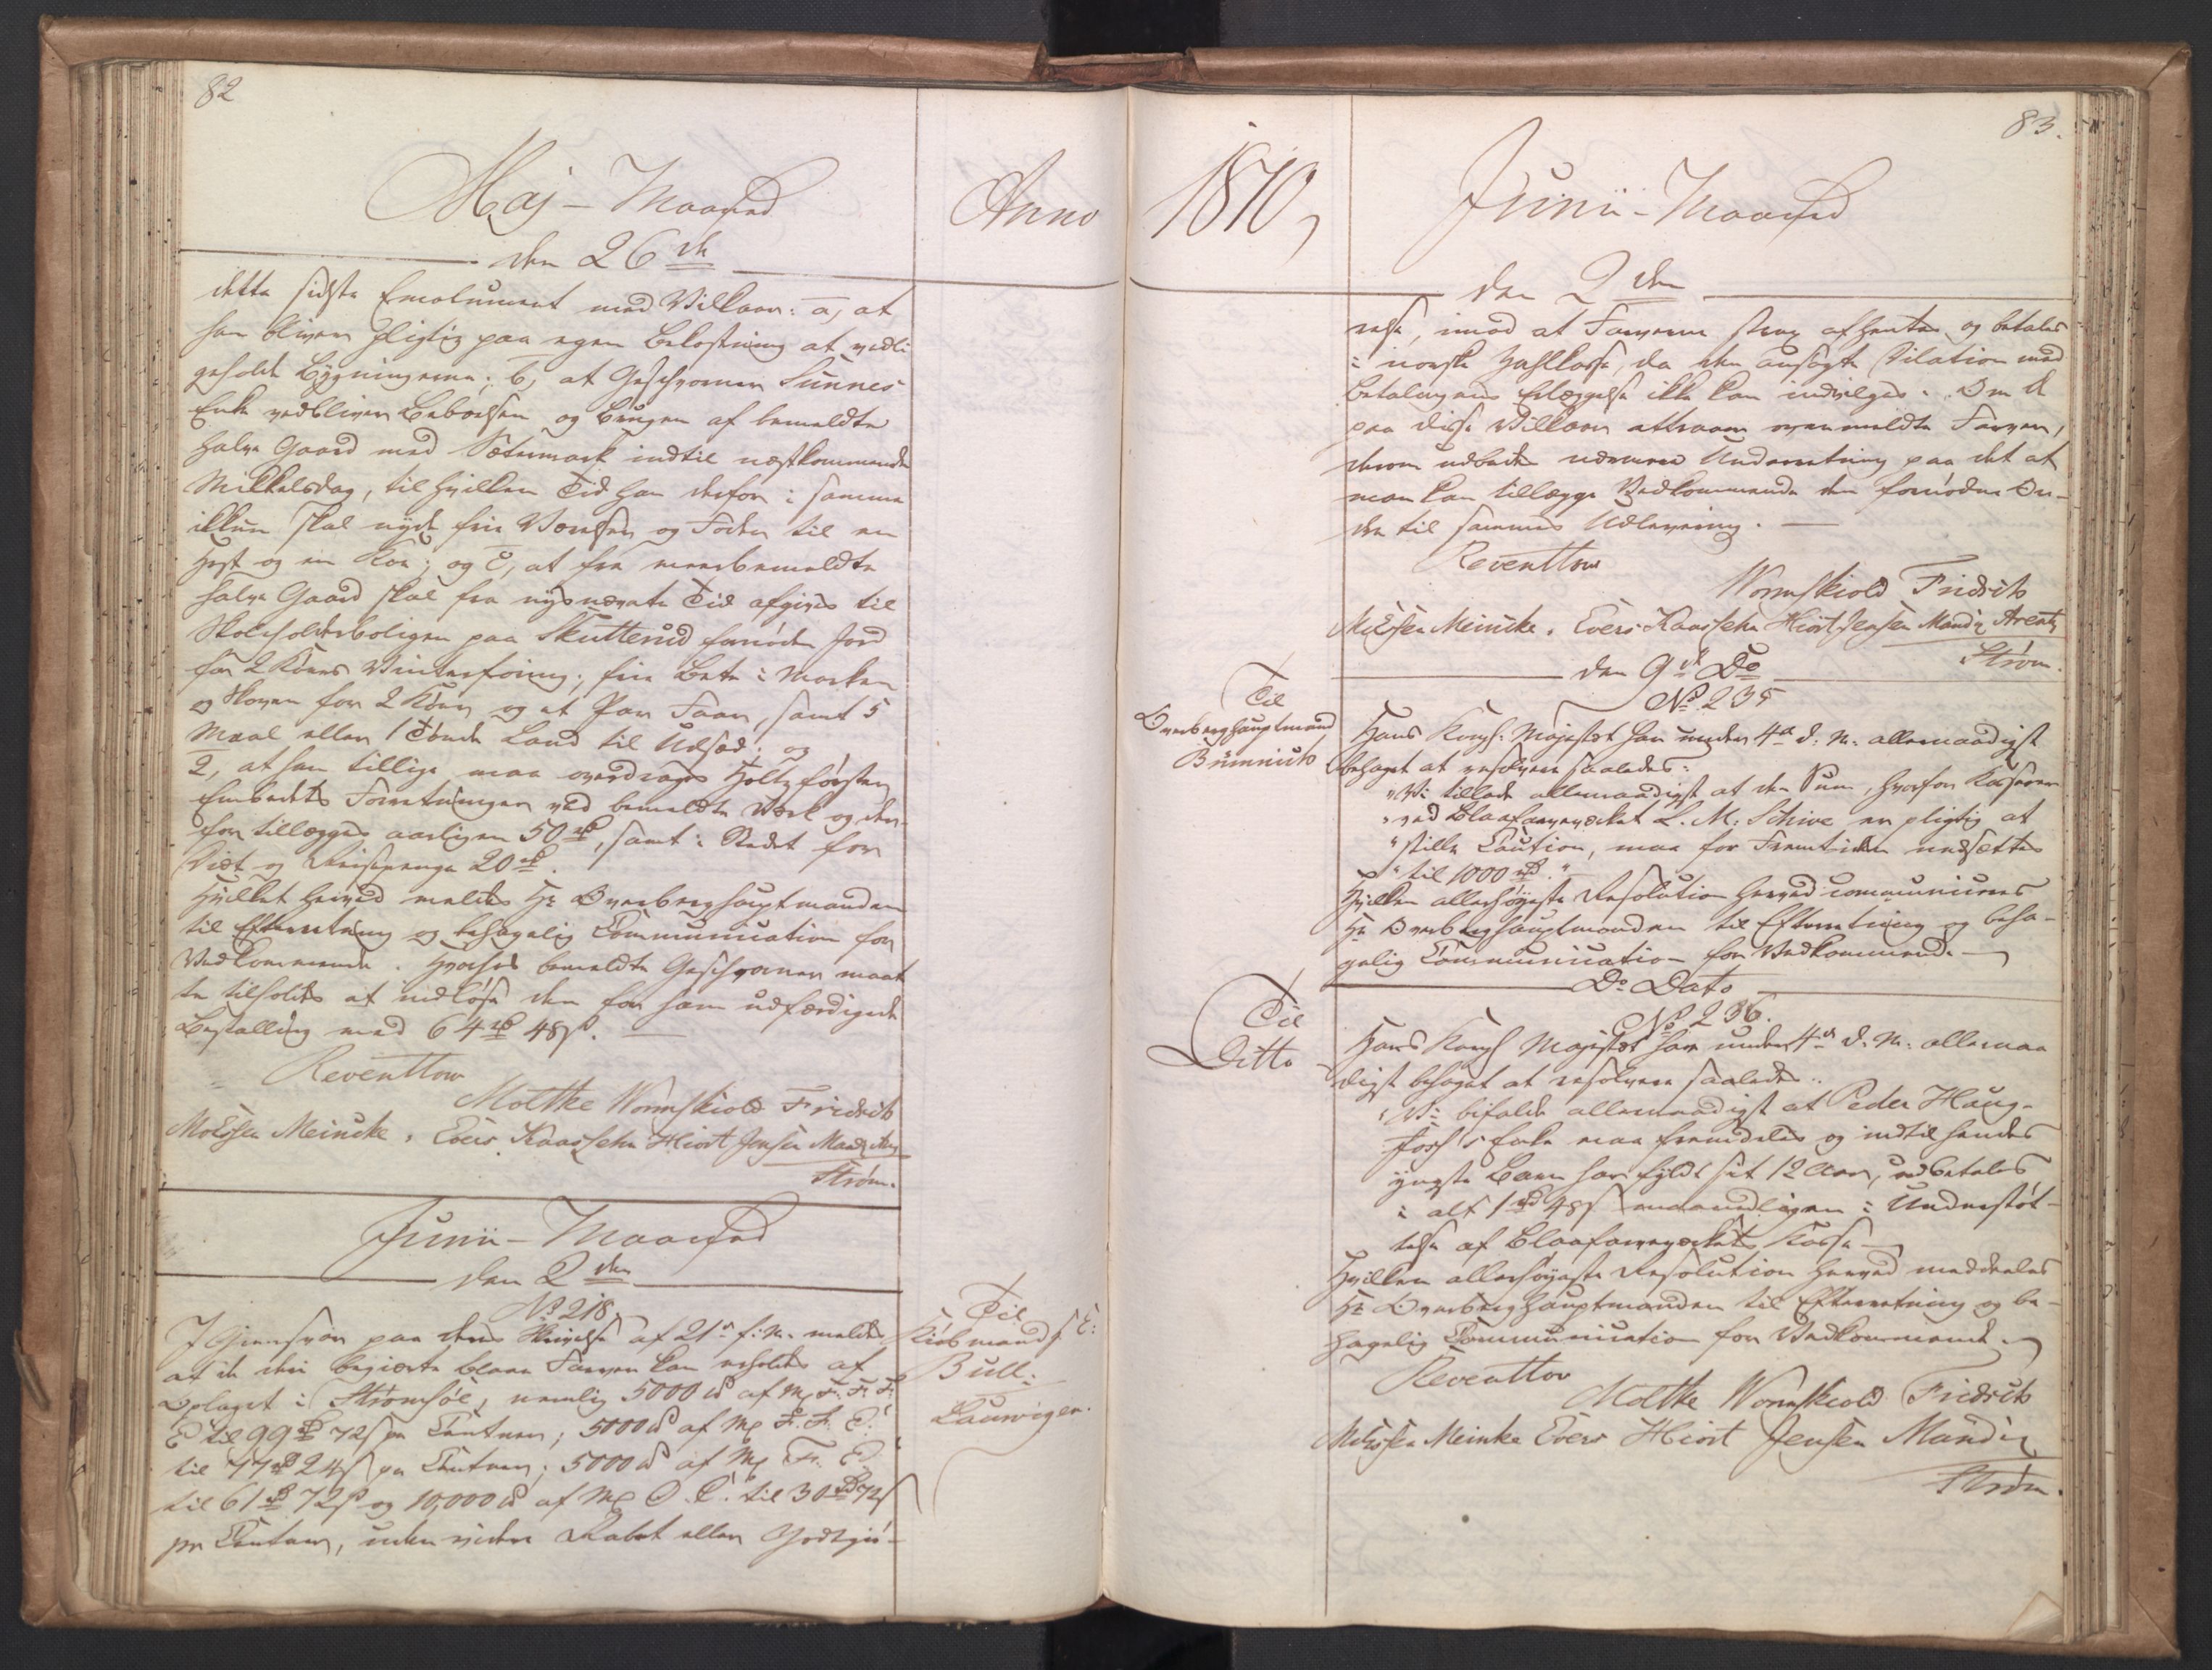 82
Maj - Maaned
Anno
den 26de
dette sidste Emolument med Vilkaar: a, at
han bliver pligtig paa egen Bekostning at vedli
geholde Bÿgningerne; b, at Geschvorner Sunnes
Enke vedbliver Beboelsen og Brugen af bemeldte
halve Gaard med Sætermark indtil næstkommende
Mikkelsdag, til hvilken Tid han derfor i samme
ikkun skal nÿde frie Værelser og Foder til en
Hest og en Koe; og c, at fra meerbemeldte
halve Gaard skal fra nÿsnævnte Tid afgives til
Skoleholderboligen paa Skutterud fornöden Jord
for 2 Köers Vinterforing; frie Beete i Marken
og Skoven for 2 Köer og et Par Faar, samt 5
Maal eller 1 Tönde Land til Udsæd; og
2, at han tillige maa overdrages Holtzförster
Embedets Forretninger ved bemeldte Værk og der-
for tillægges aarligen 50 rd, samt i Stedet for
Diæt og Reisepenge 20 rd.
Hvilket herved meldes Hr Overberghauptmanden
til Efterretning og behagelig Communication for
Vedkommende. Hvorhos bemeldte Geschvorner maat
te tilholdes at indlöse den for ham udfærdigede
Bestalling med 64 rd 48 s.
Reventlow
Moltke Wormskiold Fridrich
Mössen Meincke, Evers Kaasbøhn Hiort Jensen Mandix
Strøm.
Junii - Maaned
den 2den
No 218
Til
Kiöbmand S. E:
Bull:
Laurvigen.
I Giensvar paa Deres Skrivelse af 21de f: M: meldes
at de den begjærte blaae Farver kan erholdes af
Oplaget i Strömsöe, nemlig 5000 lb af Mk F. F. F.
E til 99 rd 72 s pr Centner; 5000 lb af Mk F. F. E.
til 77 rd 24 s pr Centner; 5000 lb af Mk F. E.
til 61 rd 72 s og 10,000 lb af Mk O. E. til 30 rd 72 s
pr Centner, uden videre Rabat eller Godtgiö-
83.
1810,
Junii - Maaned
den 2den
relse, imod at Farverne strax afhentes og betales
i norske Zahlkasse, da den ansögte Dilation med
Betalingens Erlæggelse ikke kan indvilges. Om De
paa disse Vilkaar attraaer ovenmeldte Farver,
derom udbedes nærmere Underretning paa det at
man kan tillægge Vedkommende den fornödne Or-
dre til sammes Udlevering.
Reventlow
Wormskiold Fridrich
Mössen Meincke, Evers Kaasbøhn Hiort Jensen Mandix Arentz
Strøm.
den 9de Do
No 235
Til
Overberghauptmand
Brünnich
Hans Kongl: Majestæt har under 4de d: M: allernaadigst
behaget at resolvere saaledes:
"Vi tillade allernaadigst at den Sum, hvorfor Kasserer
"ved Blaafarveværket L. M. Schive er pligtig at
"stille Caution, maa for Fremtiden nedsættes
"til 1000 rd."
Hvilken allerhöÿeste Resolution herved communiceres
Hr Overberghauptmanden til Efterretning og beha-
gelig Communication for Vedkommende.
Do Dato
No 236.
Til
Ditto
Hans Kongl Majestæt har under 4de d. M: allernaa
digst behaget at resolvere saaledes:
"Vi bifalde allernaadigst at Peder Haug-
foss's Enke maa fremdeles og indtil hendes
ÿngste Barn har fÿldt sit 12 Aar, udbetales
i alt 1 rd 48 s maanedligen i Understöt-
telse af Blaafarveværkets Kasse
Hvilken allerhöÿeste Resolution herved meddeeles
Hr Overberghauptmanden til Efterretning og be-
hagelig Communication for Vedkommende.
Reventlov
Moltke Wormskiold Fridrich
Mössen Meinke Evers Hiort Jensen Mandix
Strøm.